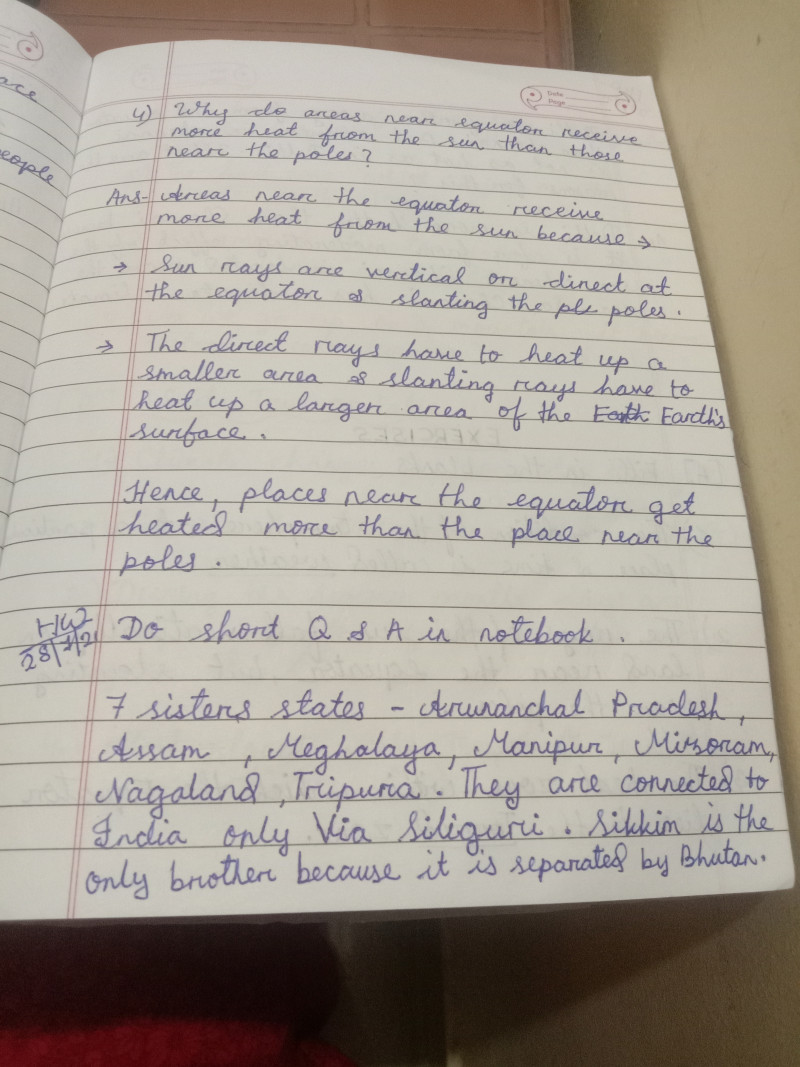 ace
eople
Date
Page
4) Why do areas near equator receive
more heat from the sun than those
near the poles?
Ans- Areas near the equator receive
more heat from the sun because →
→ Sun rays are vertical or direct at
the equator & slanting the ple poles.
→ The direct rays have to heat up a
smaller area & slanting rays have to
heat up a larger area of the Earth Earth's
surface.
Hence, places near the equator get
heated more than the place near the
poles.
H.W
Do short Q & A in notebook.
7 sisters states - Arunanchal Pradesh,
Assam, Meghalaya, Manipur, Mizoram,
Nagaland, Tripura. They are connected to
India only Via Siliguri. Sikkim is the
only brother because it is separated by Bhutan.